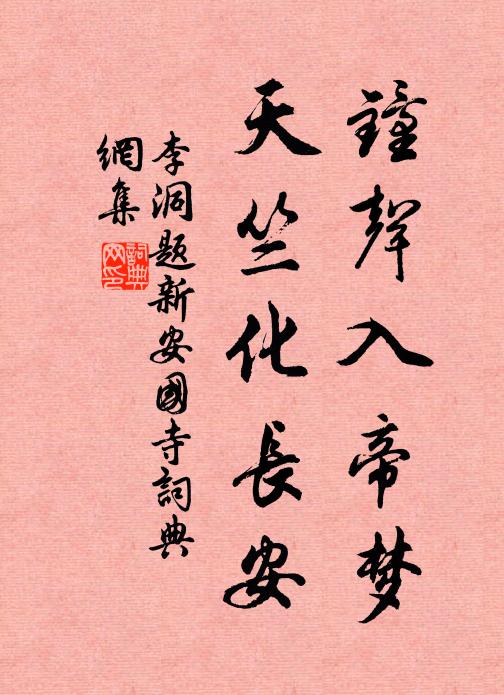 鐘聲入帝梦
天竺化長安
李洞题新安國寺詞典
網集
詞典
网印